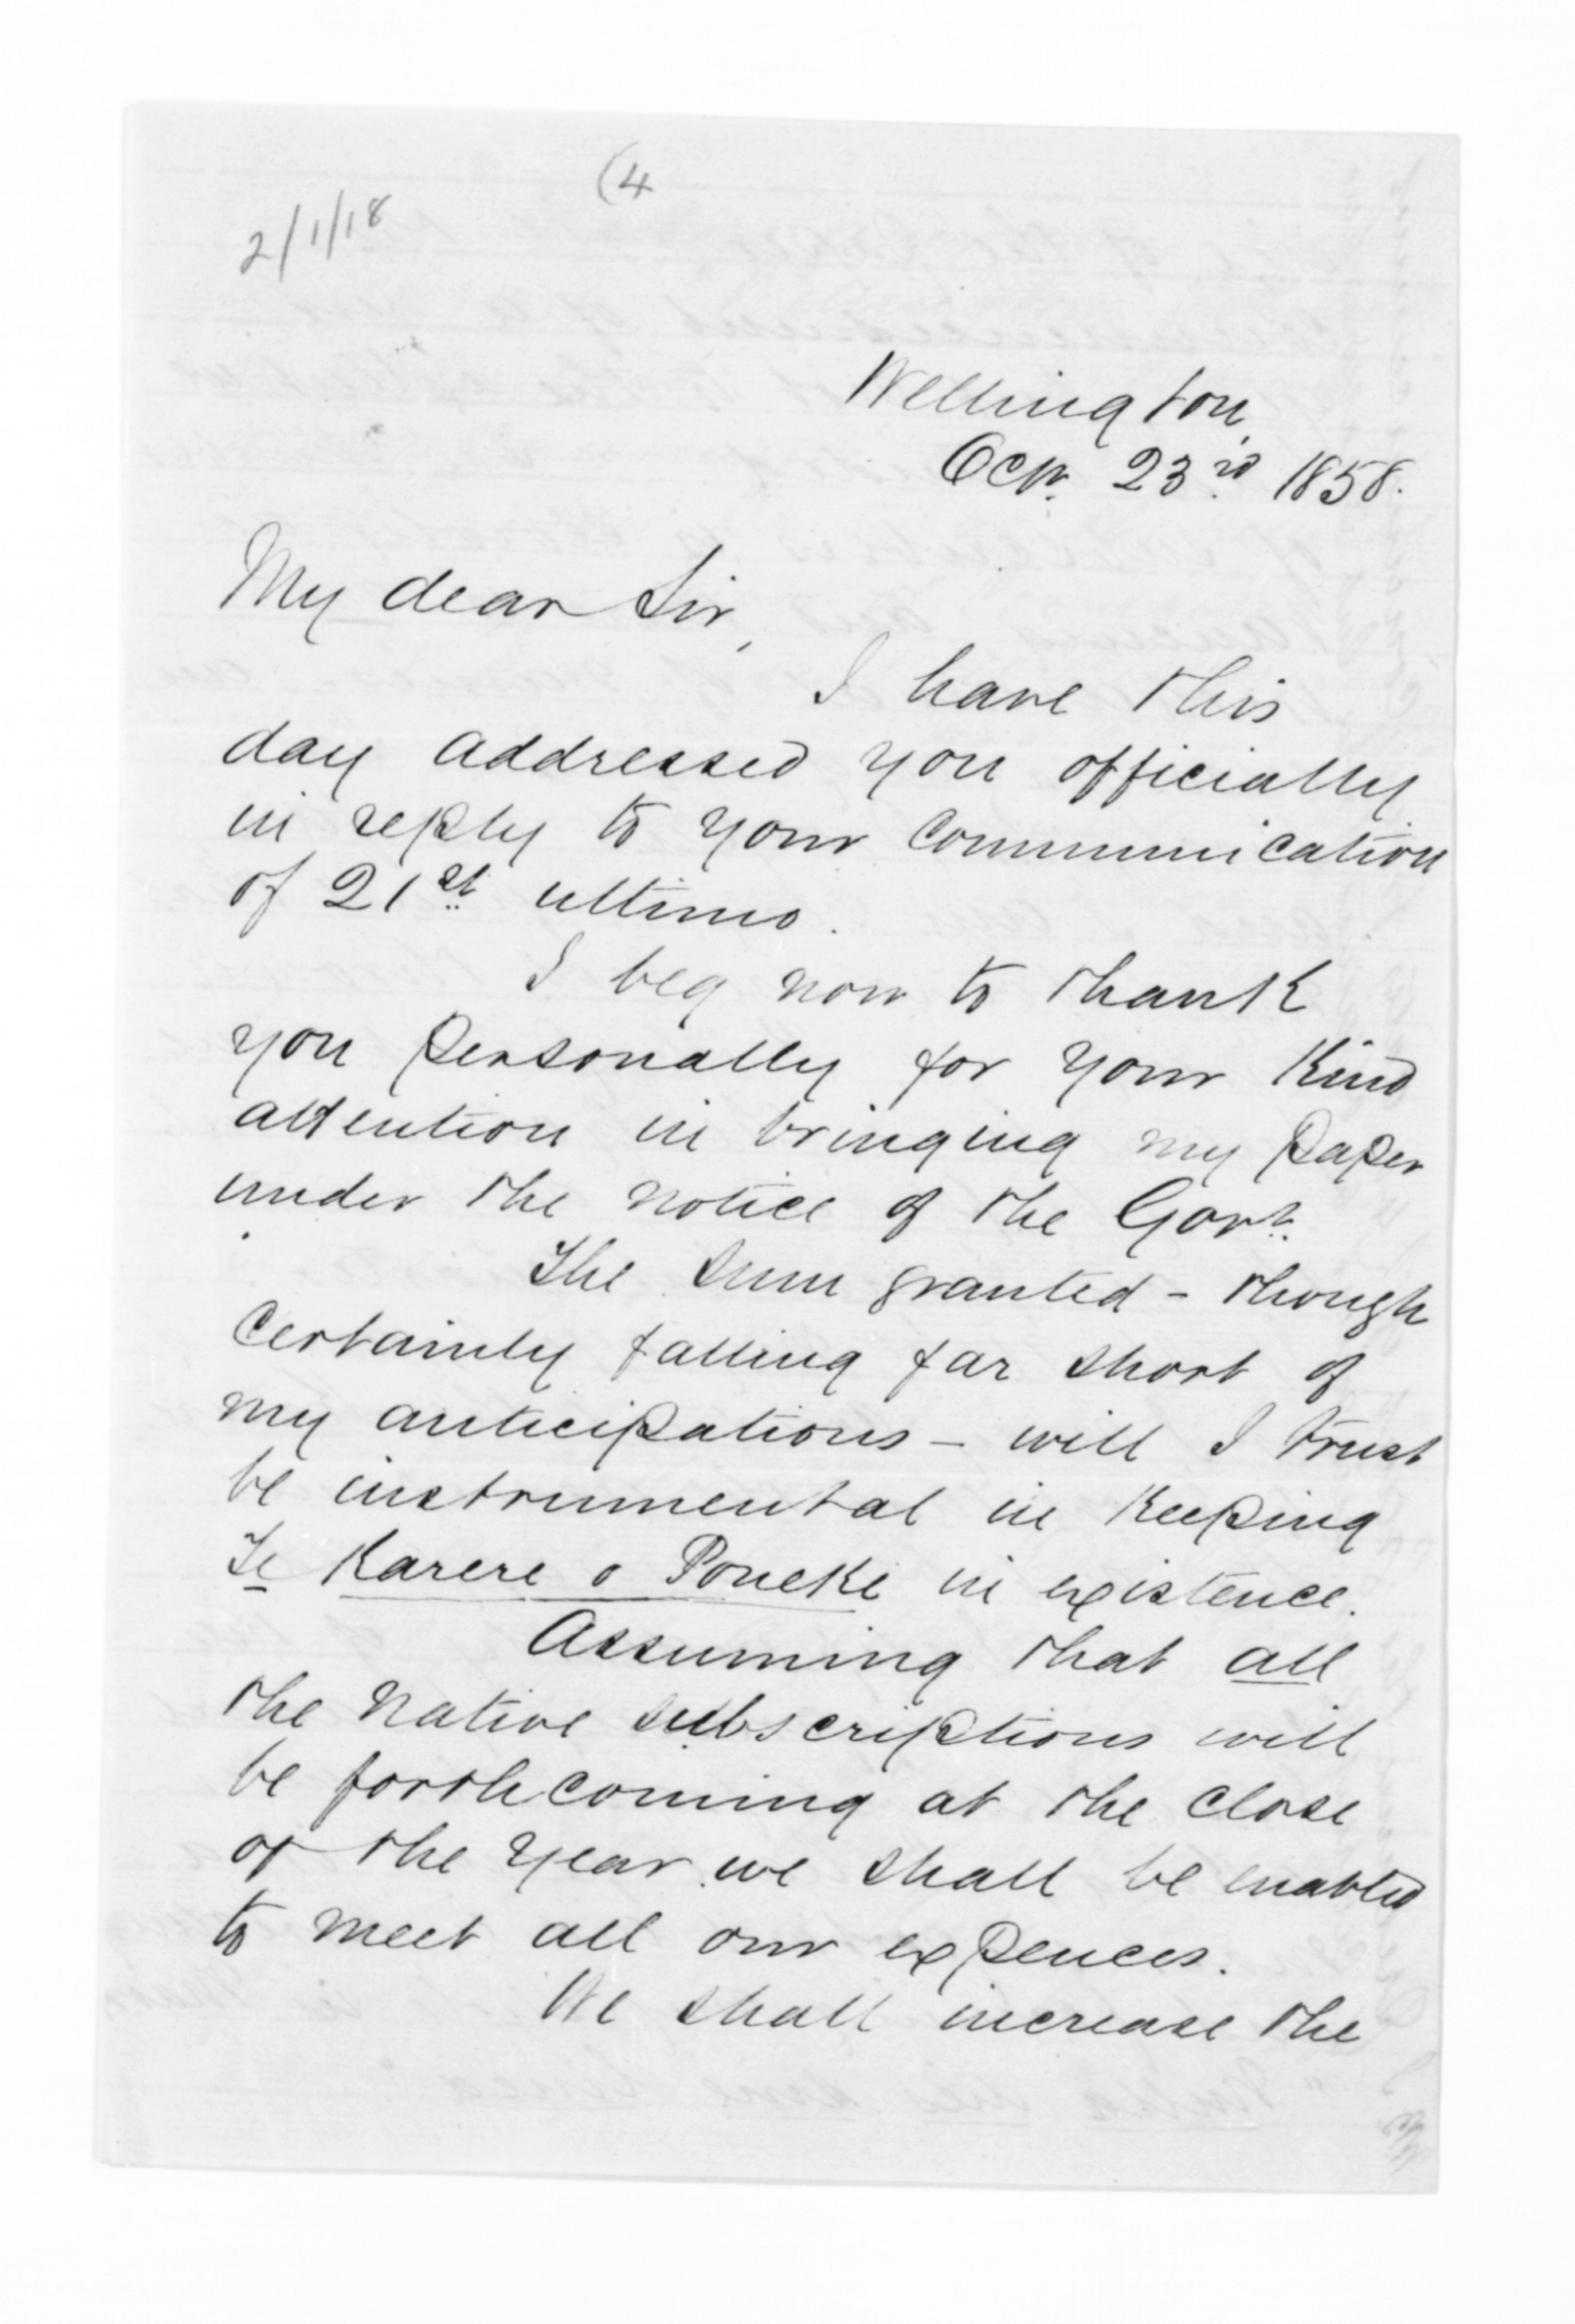 (4
2/1/18
Wellington,
Oct. 23rd 1858.
My dear Sir,
I have this
day addressed you officially
in reply to your communication
of 21st ultimo.
I beg now to thank
you personally for your kind
attention in bringing my paper
under the notice of the Govt.
The sum granted - though
certainly falling far short of
my anticipations - will I trust
be instrumental in keeping
Te Karere o Poneke in existence.
Assuming that all
the native subscriptions will
be forthcoming at the close
of the year we shall be enabled
to meet all our expences.
We shall increase the